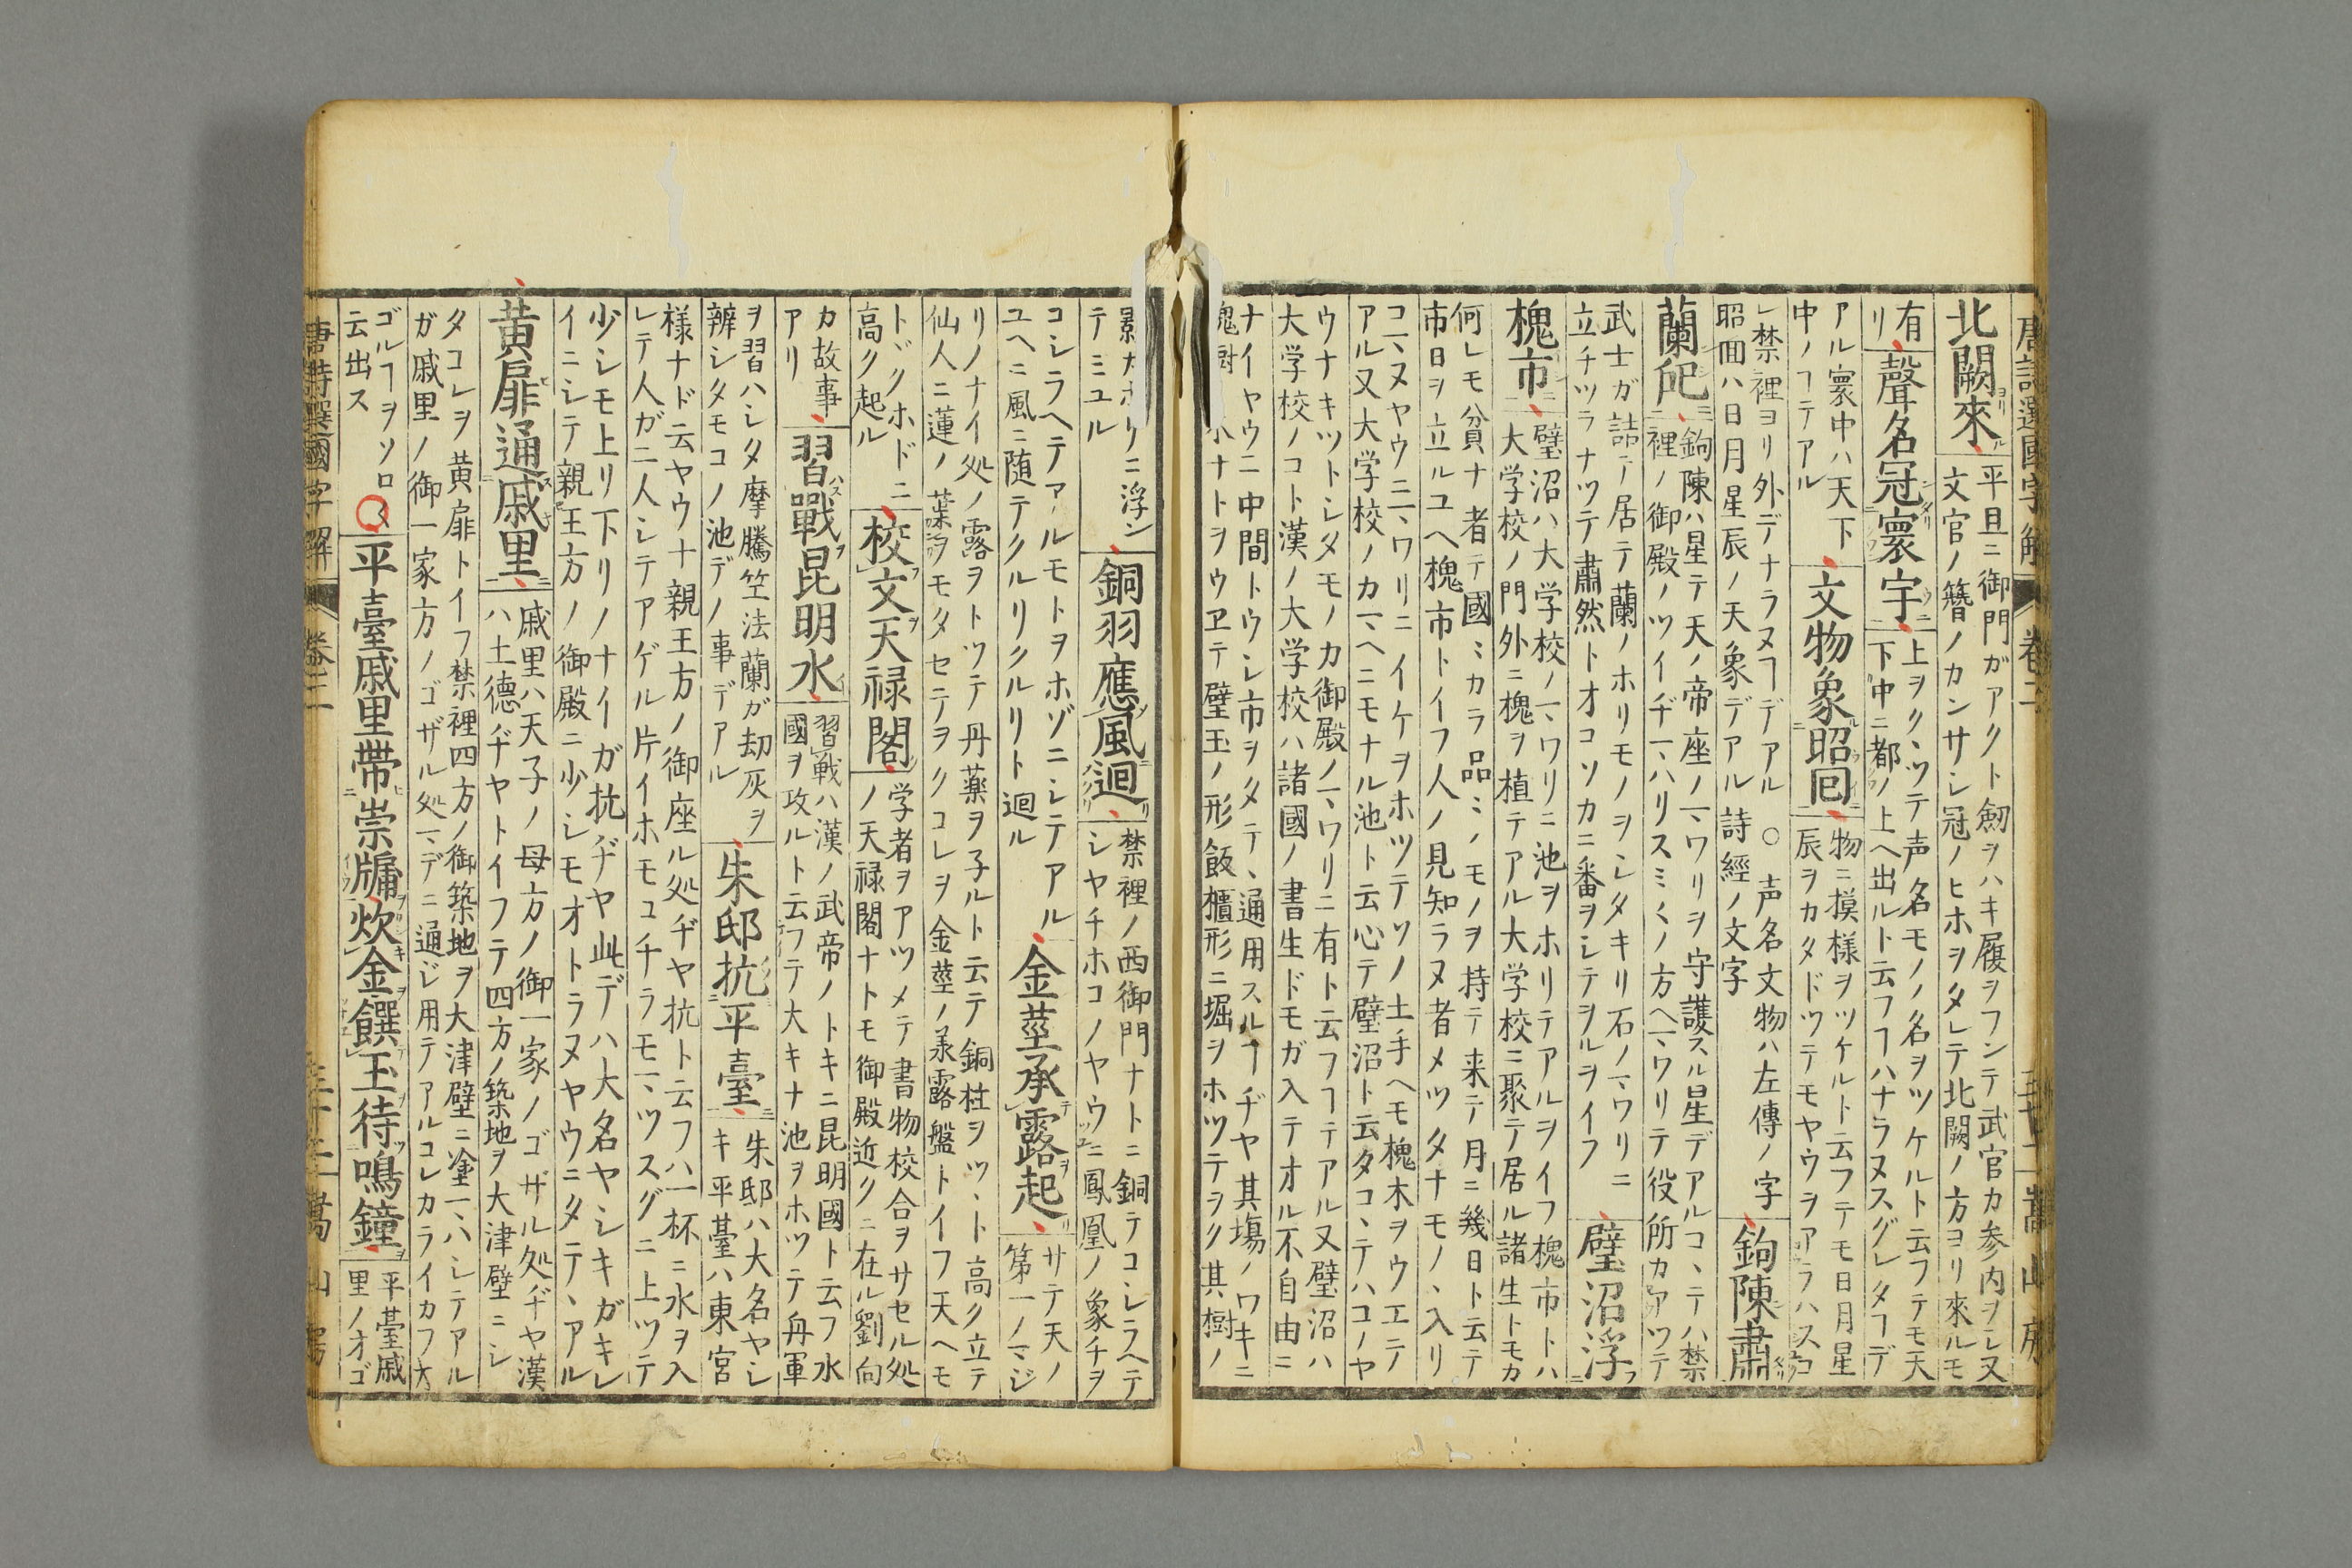 唐詩選國字解 卷二 嵩山房
北闕來 平旦ニ御門ガアクト劒ヲハキ履ヲフンテ武官カ参内ヲシ又
文官ノ簪ノカンサシ冠ノヒホヲタレテ北闕ノ方ヨリ來ルモ
有リ 聲名冠寰宇 上ヲクヽツテ声名モノノ名ヲツケルト云フテモ天
下中ニ都ノ上ヘ出ルト云フヿハナラヌスグレタヿデ
アル寰中ハ天下
中ノヿテアル 文物象昭囘 物ニ摸様ヲツケルト云フテモ日月星
辰ヲカタドツテモヤウヲアラハスコ
レ禁裡ヨリ外デナラヌヿデアル ○声名文物ハ左傳ノ字
昭囬ハ日月星辰ノ天象デアル詩經ノ文字 鉤陳肅
蘭戺 鉤陳ハ星テ天ノ帝座ノマワリヲ守護スル星デアルコヽテハ禁
裡ノ御殿ノツイヂマハリスミ〱ノ方ヘマワリテ役所カアツテ
武士ガ詰テ居テ蘭ノホリモノヲシタキリ石ノマワリニ
立チツラナツテ肅然トオコソカニ番ヲシテヲルヲイフ 璧沼浮
槐市 璧沼ハ大学校ノマワリニ池ヲホリテアルヲイフ槐市トハ
大学校ノ門外ニ槐ヲ植テアル大学校ニ聚テ居ル諸生トモカ
何レモ貧ナ者テ國〻カラ品〻ノモノヲ持テ来テ月ニ幾日ト云テ
市日ヲ立ルユヘ槐市トイフ人ノ見知ラヌ者メツタナモノヽ入リ
コマヌヤウニマワリニイケヲホツテソノ土手ヘモ槐木ヲウエテ
アル又大学校ノカマヘニモナル池ト云心テ璧沼ト云タコヽテハコノヤ
ウナキツトシタモノカ御殿ノマワリニ有ト云フヿテアル又璧沼ハ
大学校ノコト漢ノ大学校ハ諸國ノ書生ドモガ入テオル不自由ニ
ナイヤウニ中間トウシ市ヲタテヽ通用スルヿヂヤ其塲ノワキニ
ナトヲウヱテ璧玉ノ形飯櫃形ニ堀ヲホツテヲク其樹ノ
ニ浮ン
テミユル 銅羽應風迴 禁裡ノ西御門ナトニ銅テコシラヘテ
シヤチホコノヤウニ鳳凰ノ象チヲ
コシラヘテアルモトヲホゾニシテアル
ユヘニ風ニ随テクルリクルリト迴ル 金莖承露起 サテ天ノ
第一ノマジ
リノナイ処ノ露ヲトツテ丹藥ヲ子ルト云テ銅柱ヲツヽト高ク立テ
仙人ニ蓮ノ葉ヲモタセテヲクコレヲ金莖ノ承露盤トイフ天ヘモ
トヾクホドニ
高ク起ル 校文天禄閣 学者ヲアツメテ書物校合ヲサセル処
ノ天禄閣ナトモ御殿近クニ在ル劉向
カ故事
アリ 習戰昆明水 習戰ハ漢ノ武帝ノトキニ昆明國ト云フ水
國ヲ攻ルト云フテ大キナ池ヲホツテ舟軍
ヲ習ハシタ摩騰竺法蘭ガ刧灰ヲ
辨シタモコノ池デノ事デアル 朱邸抗平臺 朱邸ハ大名ヤシ
キ平臺ハ東宮
様ナド云ヤウナ親王方ノ御座ル処ヂヤ抗ト云フハ一杯ニ水ヲ入
レテ人ガ二人シテアゲル片イホモコチラモマツスグニ上ツテ
少シモ上リ下リノナイガ抗ヂヤ此デハ大名ヤシキガキレ
イニシテ親王方ノ御殿ニ少シモオトラヌヤウニタテヽアル
黄扉通戚里 戚里ハ天子ノ母方ノ御一家ノゴザル処ヂヤ漢
ハ土德ヂヤトイフテ四方ノ築地ヲ大津壁ニシ
タコレヲ黄扉トイフ禁裡四方ノ御築地ヲ大津壁ニ塗マハシテアル
ガ戚里ノ御一家方ノゴザル処マデニ通ジ用テアルコレカライカフ大
ゴルヿヲソロ〱
云出ス 平臺戚里帶崇牗炊金饌玉待鳴鐘 平臺戚
里ノオゴ
唐詩選國字解 卷二 嵩山房